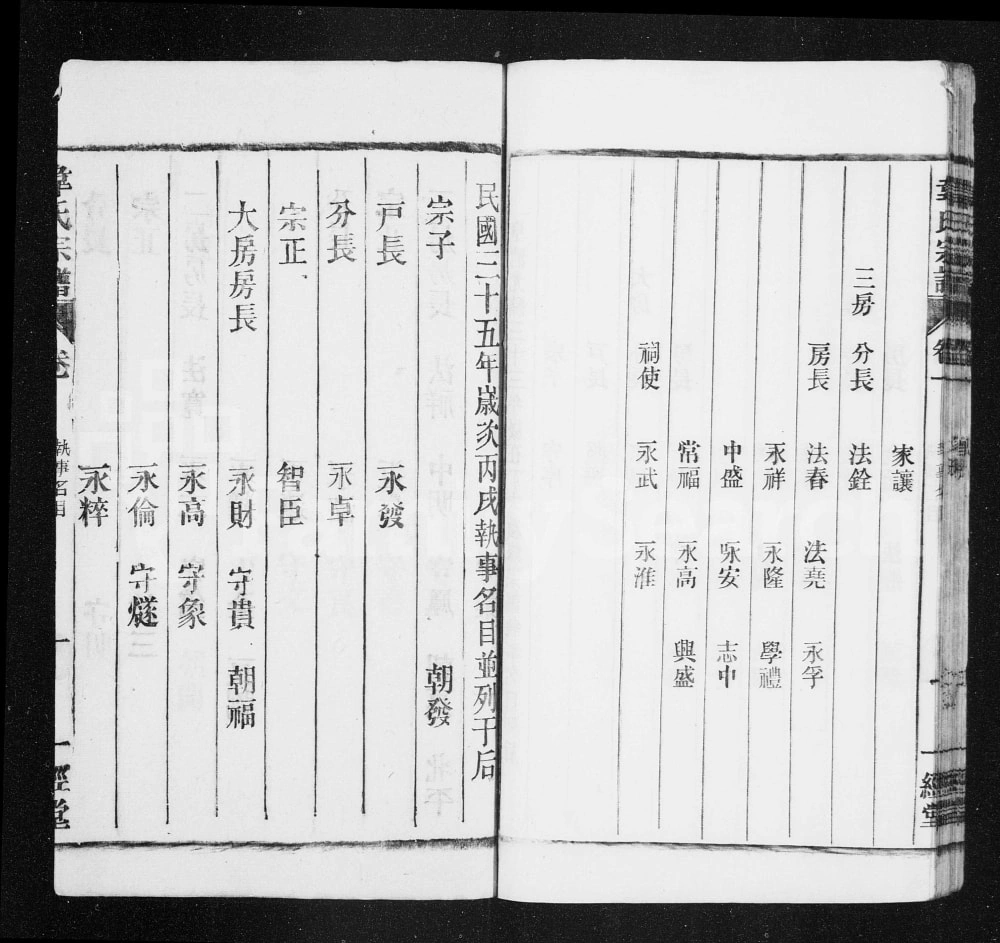 韋氏宗譜 卷一 一經堂
家讓
三房 分長 法銓
房長 法春 法堯 永孚
永祥 永隆 學禮
中盛 咏安 志中
常福 永高 興盛
祠使 永武 永淮
民國三十五年歲次丙戌執事名目並列于后
宗子 朝發
戸長 永發
分長 永卓
宗正 智臣
大房房長 永財 守貴 朝福
永高 守象
永倫 守燧
永粹
韋氏宗譜 卷 執事名目 一 一經堂